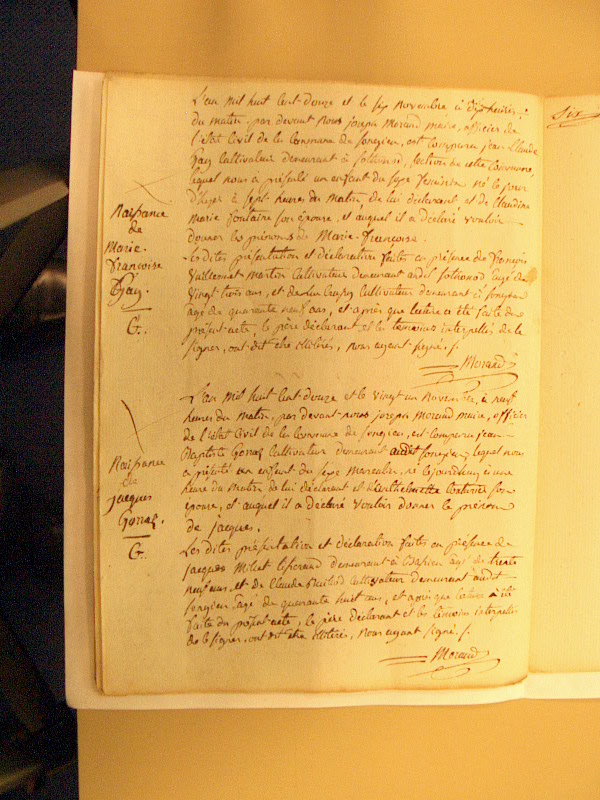 L'an mil huit cent douze et le six novembre à dix heures
du matin, par devant nous joseph Morand maire, officier de
l'état civil de la commune de songieu, est comparu jean Claude
Gay cultivateur demeurant à sothonod, section de cette commune,
lequel nous a présenté un enfant du sexe féminin né le jour
d'hyer à sept heures du matin, de lui déclarant, et de Claudine
Marie fontaine son épouse, et auquel il a déclaré vouloir
donner les prénoms de Marie-françoise.
Les dites présentation et déclaration faites en présence de françois
Vuillemet Martin cultivateur demeurant audit sothonod agé de
vingt trois ans, et de cultivateur demeurant à songieu
agé de quarante neuf ans, et après que lecture a été faite du
présent acte, le père déclarant et les témoins interpellés de le
signer, ont dit être illitérés, nous ayant signé /.
Morand
Naissance
de
Marie-
françoise
Gay.
G.
L'an mil huit cent douze et le vingt un novembre, à neuf
heures du matin, par devant nous joseph Morand maire, officier
de l'état civil de la commune de songieu, est comparu jean-
Baptiste Gonaz cultivateur demeurant audit songieu, lequel nous
a présenté un enfant du sexe masculin, né le jourd'huy à une
heure du matin de lui déclarant et son
épouse, et auquel il a déclaré vouloir donner le prénom
de jacques.
Les dites présentation et déclaration faites en présence de
jacques Milliet demeurant à agé de trente
neuf ans, et de Claude cultivateur demeurant audit
songieu, agé de quarante huit ans, et après que lecture a été
faite du présent acte, le père déclarant et les témoins interpellés
de le signer, ont dit être illitérés, nous ayant signé /.
Morand
Naissance
de
jacques
Gonaz.
G.
Six